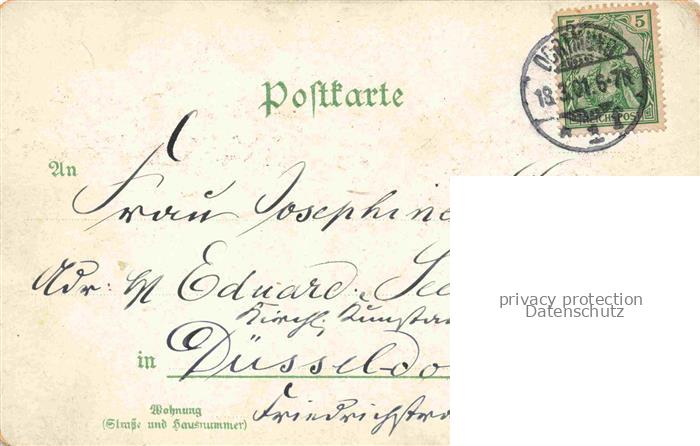 Postkarte
5
DORTMUND
18.3.01. 6-7N
REICHSPOST
1
An
Frau Josephine
Adr: H Eduard See
Kirchl. Kunstan
in Düsseldo
Wohnung
(Straße und Hausnummer)
Friedrichstra
privacy protection
Datenschutz